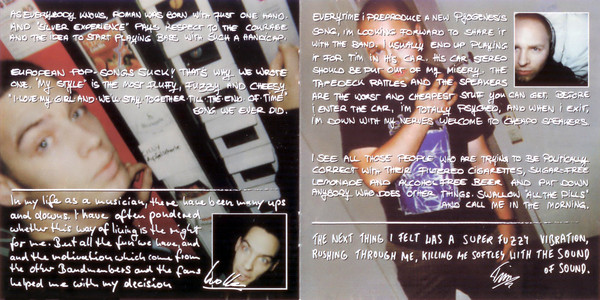 AS EVERYBODY KNOWS, ROMAN WAS BORN WITH JUST ONE HAND.
AND "SILVER EXPERIENCE" PAYS RESPECT TO THE COURAGE
AND THE IDEA TO START PLAYING BASS WITH SUCH A HANDICAP.
EUROPEAN POP-SONGS SUCK! THAT'S WHY WE WROTE
ONE. 'MY STYLE' IS THE MOST FLUFFY, FUZZY AND CHEESY
"I LOVE MY GIRL AND WE'LL STAY TOGETHER TILL THE END OF TIME"
SONG WE EVER DID.
In my life as a musician, there have been many ups
and downs. I have often pondered
whether this way of living is the right
for me. But all the fun we have, and
and the motivation which come from
the other Bandmembers and the fans
helped me with my decision
EVERYTIME I PREPRODUCE A NEW PYOGENESIS
SONG, I'M LOOKING FORWARD TO SHARE IT
WITH THE BAND. I USUALLY END UP PLAYING
IT FOR TIM IN HIS CAR. HIS CAR STEREO
SHOULD BE PUT OUT OF MY MISERY. THE
TAPEDECK RATTLES AND THE SPEAKERS
ARE THE WORST AND CHEAPEST STUFF YOU CAN GET. BEFORE
I ENTER THE CAR, I'M TOTALLY PSYCHED, AND WHEN I EXIT,
I'M DOWN WITH MY NERVES. WELCOME TO CHEAPO SPEAKERS.
I SEE ALL THOSE PEOPLE WHO ARE TRYING TO BE POLITICALLY
CORRECT WITH THEIR FILTERED CIGARETTES, SUGAR-FREE
LEMONADE AND ALCOHOL FREE BEER AND PUT DOWN
ANYBODY WHO DOES OTHER THINGS. SWALLOW "ALL THE PILLS"
AND CALL ME IN THE MORNING.
THE NEXT THING I FELT WAS A SUPER FUZZY VIBRATION,
RUSHING THROUGH ME, KILLING ME SOFTLEY WITH THE SOUND
OF SOUND.
Tim